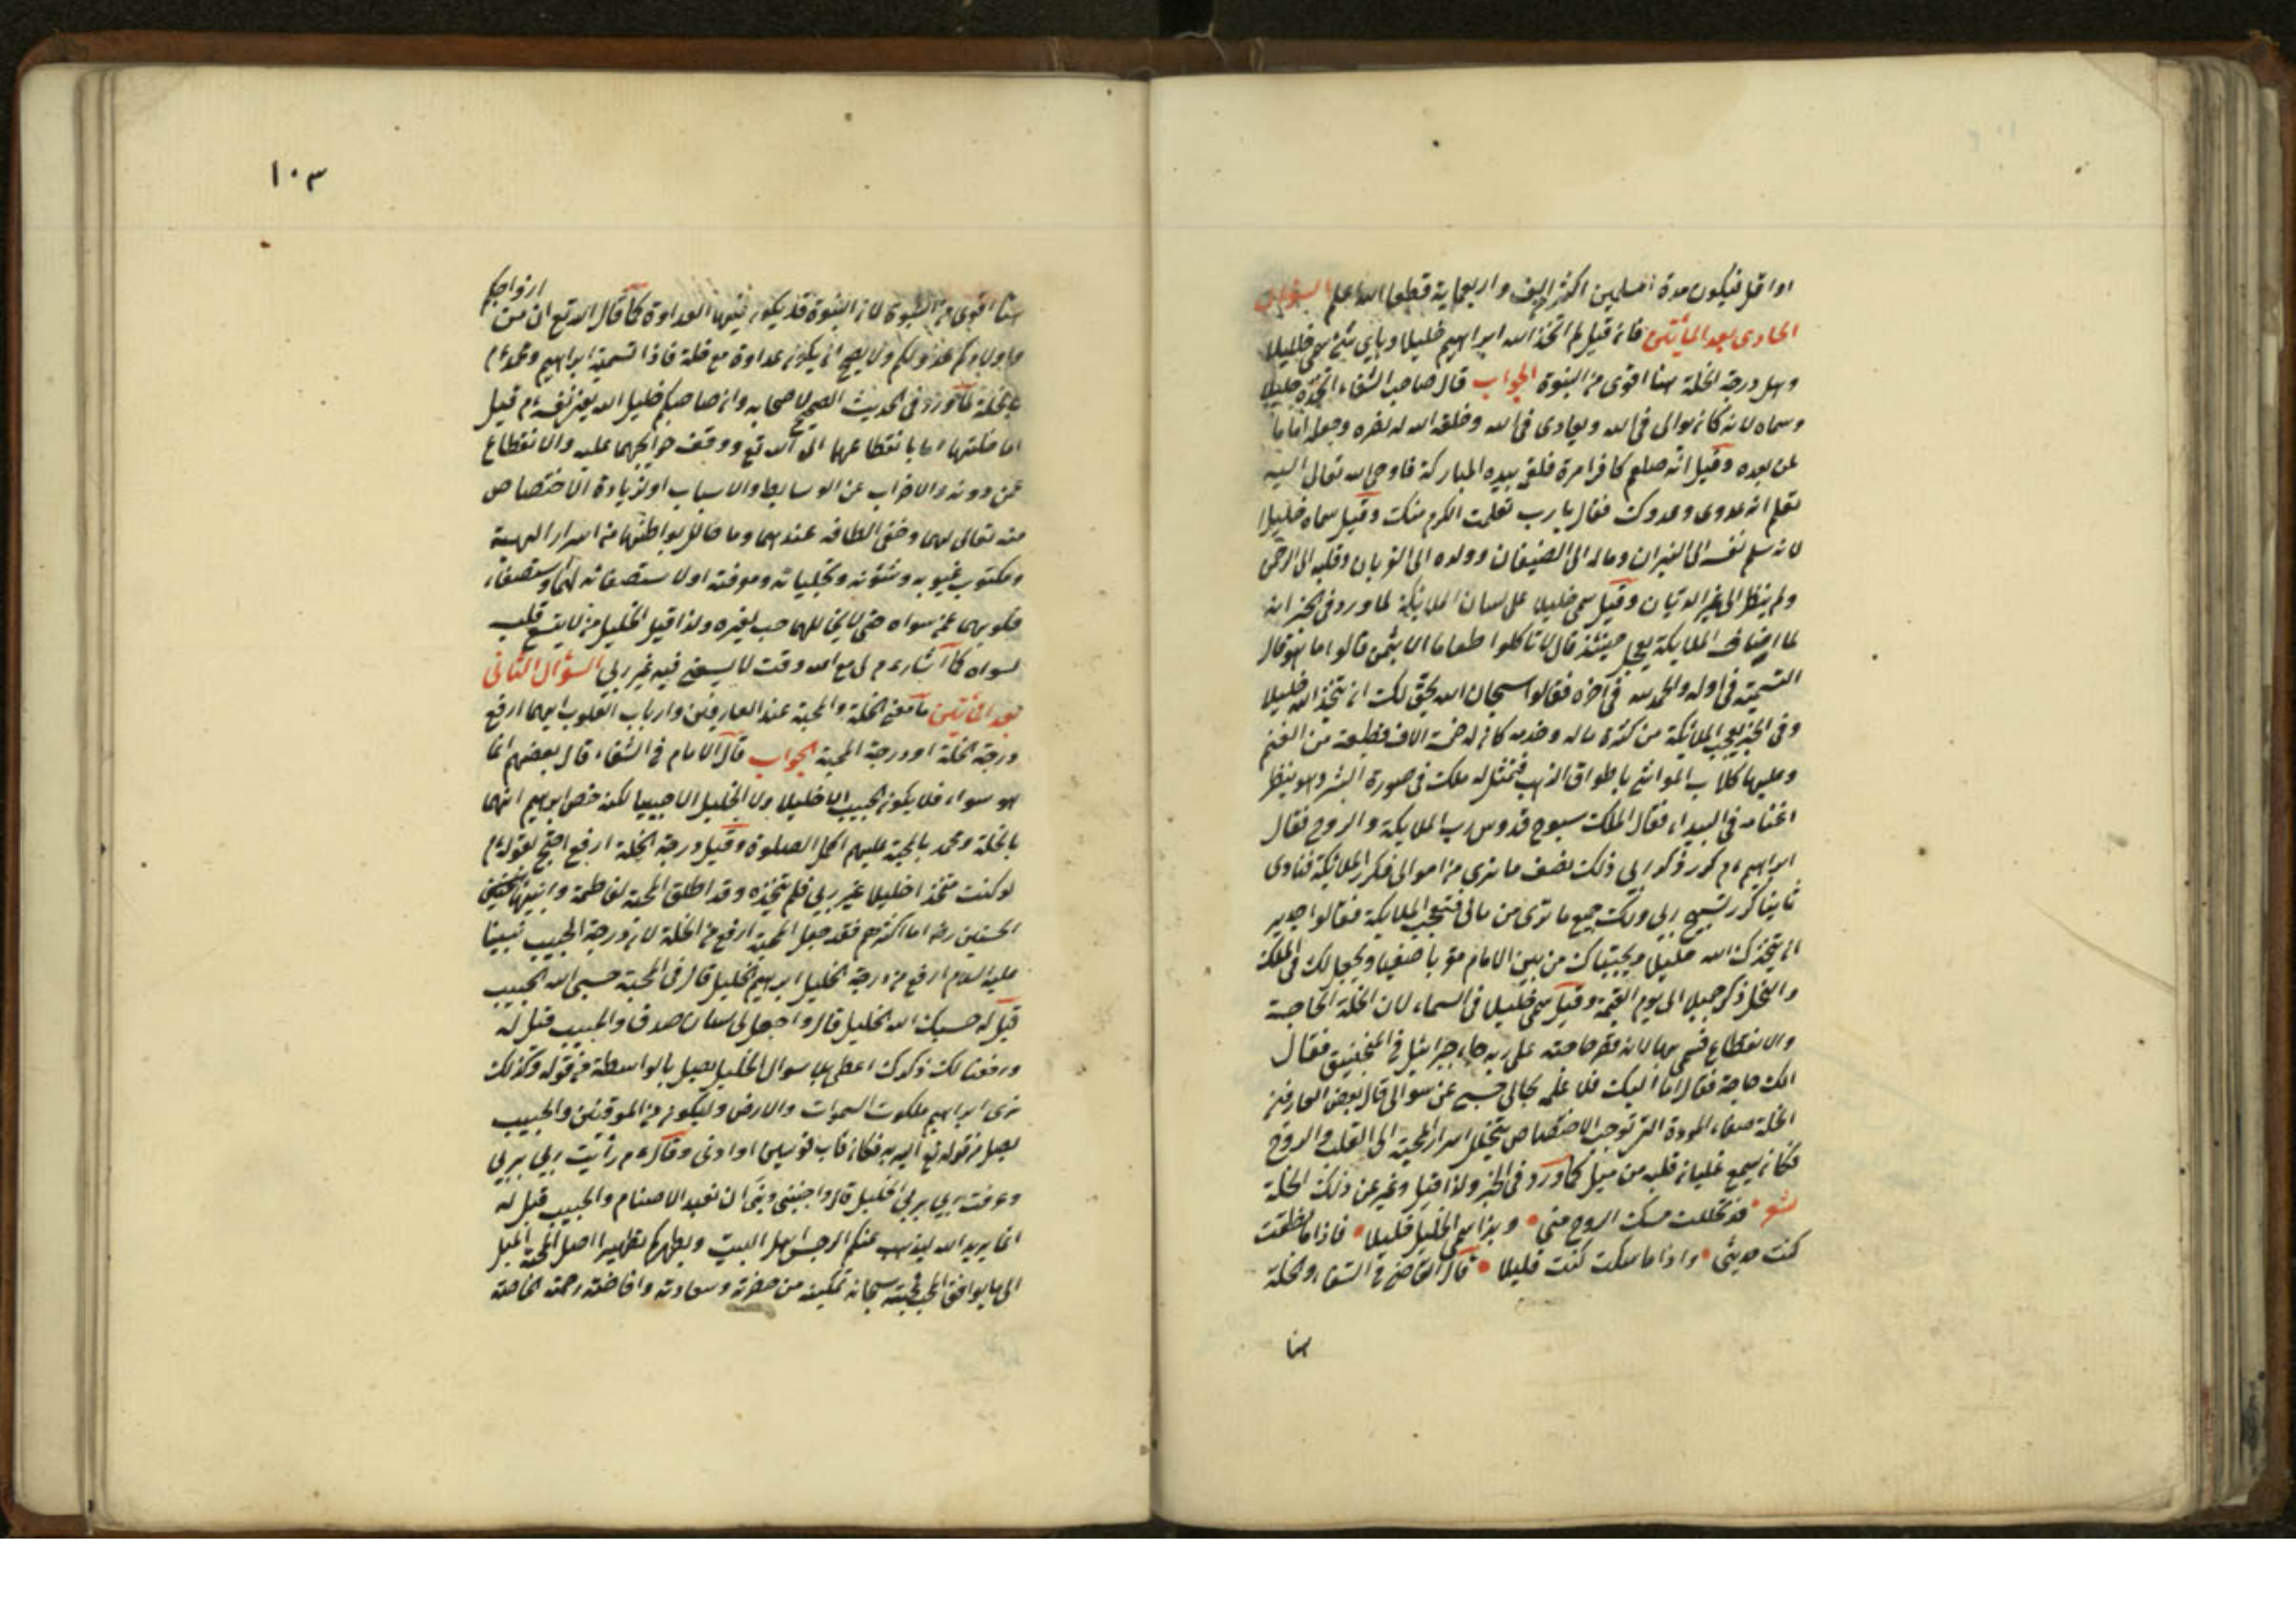 او اقل فيكون مدة المسلمين اكثر من الف واربعماية قطعا الله اعلم السؤال
الحادى بعد المأتين فان قيل لم اتخذ الله ابراهيم خليلا وباي شئ سمى خليلا
وهل درجة الخلة هنا اقوى من البنوة الجواب قال صاحب الشفاء اتخذه خليلا
وسماه لانه كان يوالى فى الله ويعادى فى الله وخلقه الله له نصره وجعله اماما
لمن بعده وقيل انه صلعم كافرا مرة فلقى بيده المباركة فاوحى الله تعالى اليه
تعلم انه عدوى وعدوك فقال يا رب تعلمت الكرم منك وقيل سماه خليلا
لانه سلم نفسه الى النيران وماله الى الضيفان وولده الى القربان وقلبه الى الرحمن
ولم ينظر الى غير الديان وقيل سمى خليلا على لسان الملائكة لما ورد فى الخبر انه
لما اضاف الملايكة بعجل حينئذ قال لا تاكلوا طعاما الا بثمن قالوا ما هو قال
التسمية فى اوله والحمد لله فى آخره فقالوا سبحان الله يحق لك ان يتخذ الله خليلا
وفى الخبر تعجب الملائكة من كثرة ماله وخدمه كان له خمسة الاف قطيعة من الغنم
وعليها كلاب المواشى باطواق الذهب فتمثل له ملك فى صورة البشر وهو ينظر
اغنامه فى البيداء فقال الملك سبوح قدوس رب الملايكة والروح فقال
ابراهيم ءم كرر ذكر ربى ولك نصف ما ترى من اموالى فكرر الملائكة فنادى
ثانيا كرر تسبيح ربى ولك جميع ما ترى من مالى فتعجب الملايكة فقالوا جدير
ان يتخذك الله خليلا ويجتباك من بين الانام مؤ باصفيا ويجعل لك فى الملك
والنحل ذكرا جميلا الى يوم القيمة وقيل سمى خليلا فى السماء لان الخلة الحاجة
والانقطاع فسمى بها لانه قصر حاجته على ربه جاء جبرائيل فى المنجنيق فقال
الك حاجة فقال اما اليك فلا علمه بحالى حسبى عن سوالى قال بعض العارفين
الخلة صفاء المودة التى توجب الاختصاص بتخلل اسرار المحبة الى القلب والروح
فكان يسمع غليان قلبه من ميل كما ورد فى الخبر ولذا قيل وغير عن ذلك الخلة
شعر قد تخللت مسلك الروح منى وبذا سمى الخليل خليلا فاذا ما نطقت
كنت حديثى واذا ما سكت كنت غليلا قال القاضى فى الشفاء والخلة
هنا
١٠٣
ازواجكم
هنا اقوى من البنوة لان البنوة قد يكون فيها العداوة كما قال الله تع ان من
واولادكم عدوا لكم ولا يصح ان يكون عداوة مع خلة فاذا تسمية ابراهيم ومحمد ءم
بالخلة كما ورد فى الحديث الصحيح لاصحابه وان صاحبكم خليل الله يعنى نفسه ءم قيل
اما خلتها اما بانقطاعهما الى الله تع ووقف حوايجهما عليه والانقطاع
عمن دونه والاضراب عن الوسايط والاسباب او لزيادة الاختصاص
منه تعالى لهما وخفى الطافه عندهما وما خالل بواطنهما من اسرار الهية
ومكتوب غيوبه وشئونه وتجلياته ومعرفته او لاستصفائه لهما واستصفاء
قلوبهما عمن سواه حتى لا يخاللهما حب لغيره ولذا قيل الخليل من لا يتسع قلبه
لسواه كما اشار ءم لى مع الله وقت لا يسعنى فيه غير ربى السؤال الثانى
بعد المأتين ما معنى الخلة والمحبة عند العارفين وارباب القلوب ايهما ارفع
درجة الخلة او درجة المحبة الجواب قال الامام فى الشفاء قال بعضهم انما
هو سواء فلا يكون الحبيب الا خليلا ولا الخليل الا حبيبا لكنه خص ابراهيم
بالخلة ومحمد بالمحبة عليهم اكمل الصلوة وقيل درجة الخلة ارفع احتج لقوله ءم
لو كنت متخذا خليلا غير ربى فلم يتخذه وقد اطلق المحبة لفاطمة وابنيها
الحسنين رض اما اكثرهم فقد جعل المحبة ارفع من الخلة لان درجة الحبيب نبينا
عليه السلام ارفع من درجة الخليل ابراهيم الخليل قال فى المحبة حسبى الله الحبيب
قيل له حسبك الله الخليل قال واجعل لى لسان صدق والحبيب قيل له
ورفعنا لك ذكرك اعطى بلا سوال الخليل يصل بالواسطة من قوله وكذلك
نرى ابراهيم ملكوت السموات والارض وليكون من الموقنين والحبيب
يصل من قوله تع اليه به فكان قاب قوسين او ادنى وقال ءم رأيت ربى بربى
وعرفت ربى بربى الخليل قال واجنبنى وبنى ان نعبد الاصنام والحبيب قيل له
انما يريد الله ليذهب عنكم الرجس اهل البيت ويطهركم تطهيرا اصل المحبة الميل
الى ما يوافق المحب محبته سبحانه تمكينه من حضرته وسعادته وافاضة رحمته الخاصة